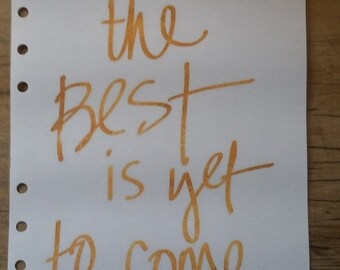 the
Best
is yet
to come